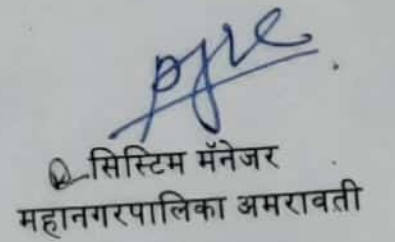 सिस्टिम मॅनेजर
महानगरपालिका अमरावती